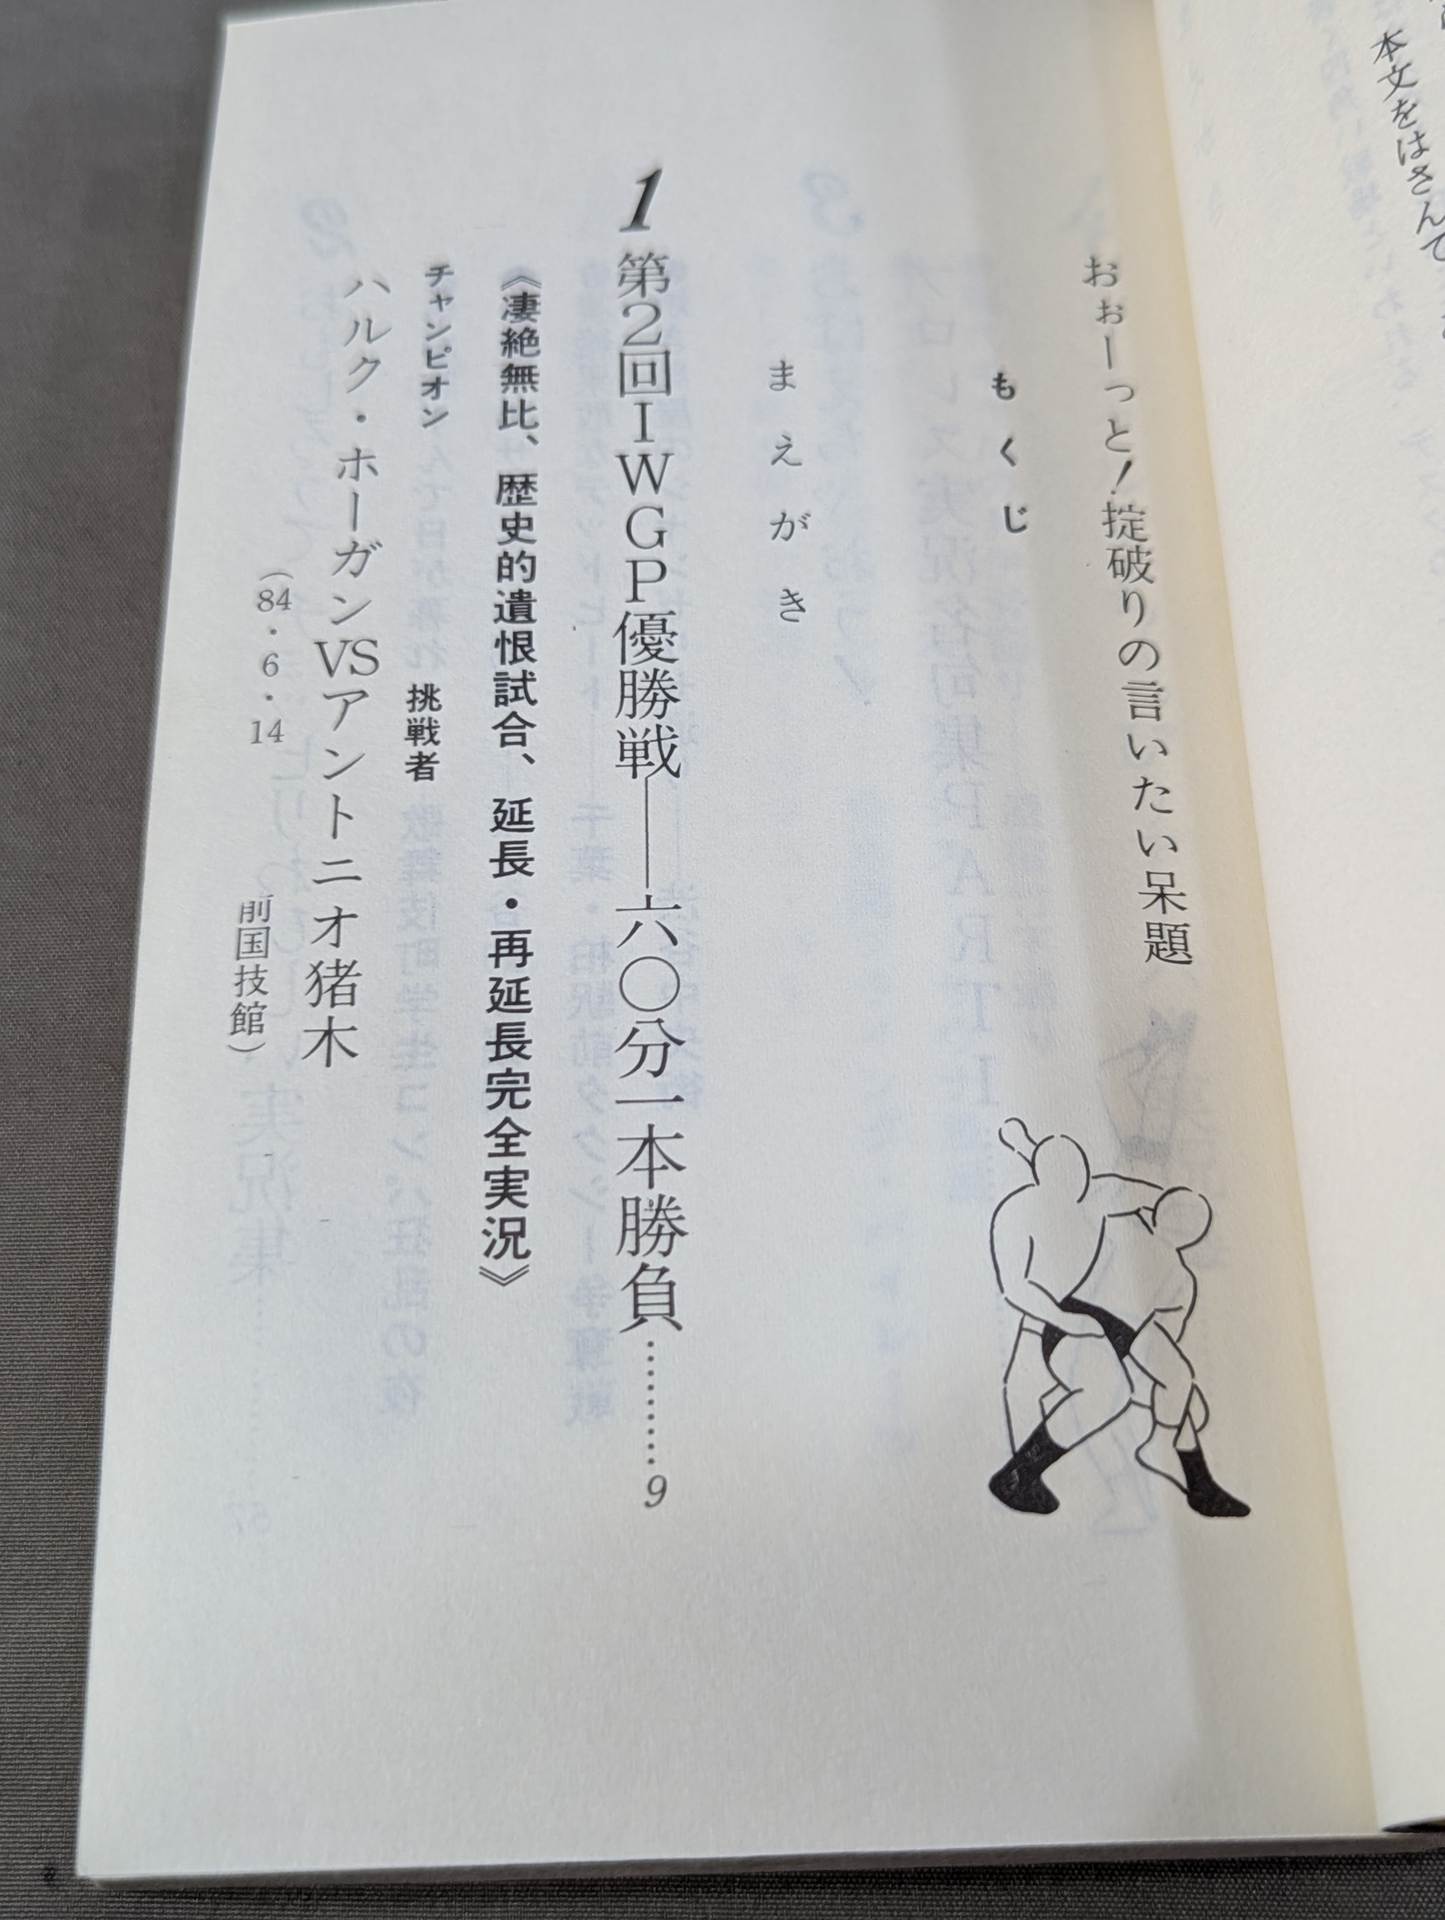 本文をはさんで
おぉーっと！掟破りの言いたい呆題
もくじ
まえがき
1 第2回IWGP優勝戦――六〇分一本勝負………9
《凄絶無比、歴史的遺恨試合、延長・再延長完全実況》
チャンピオン 挑戦者
ハルク・ホーガンVSアントニオ猪木
（84・6・14 蔵前国技館）